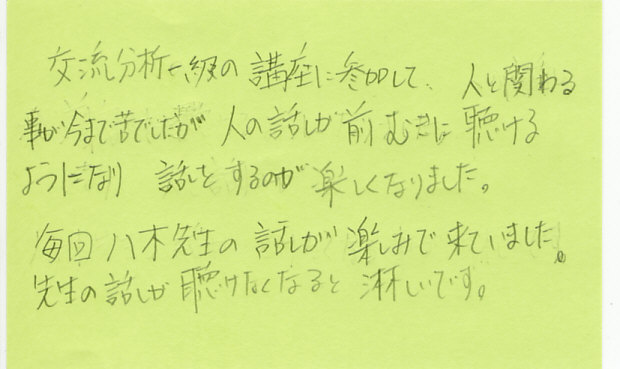 交流分析一級の講座に参加して、人と関わる
事が今まで苦でしたが 人の話しが前むきに聴ける
ようになり 話しをするのが楽しくなりました。
毎回八木先生の話しが楽しみで来ていました。
先生の話しが聴けなくなると淋しいです。